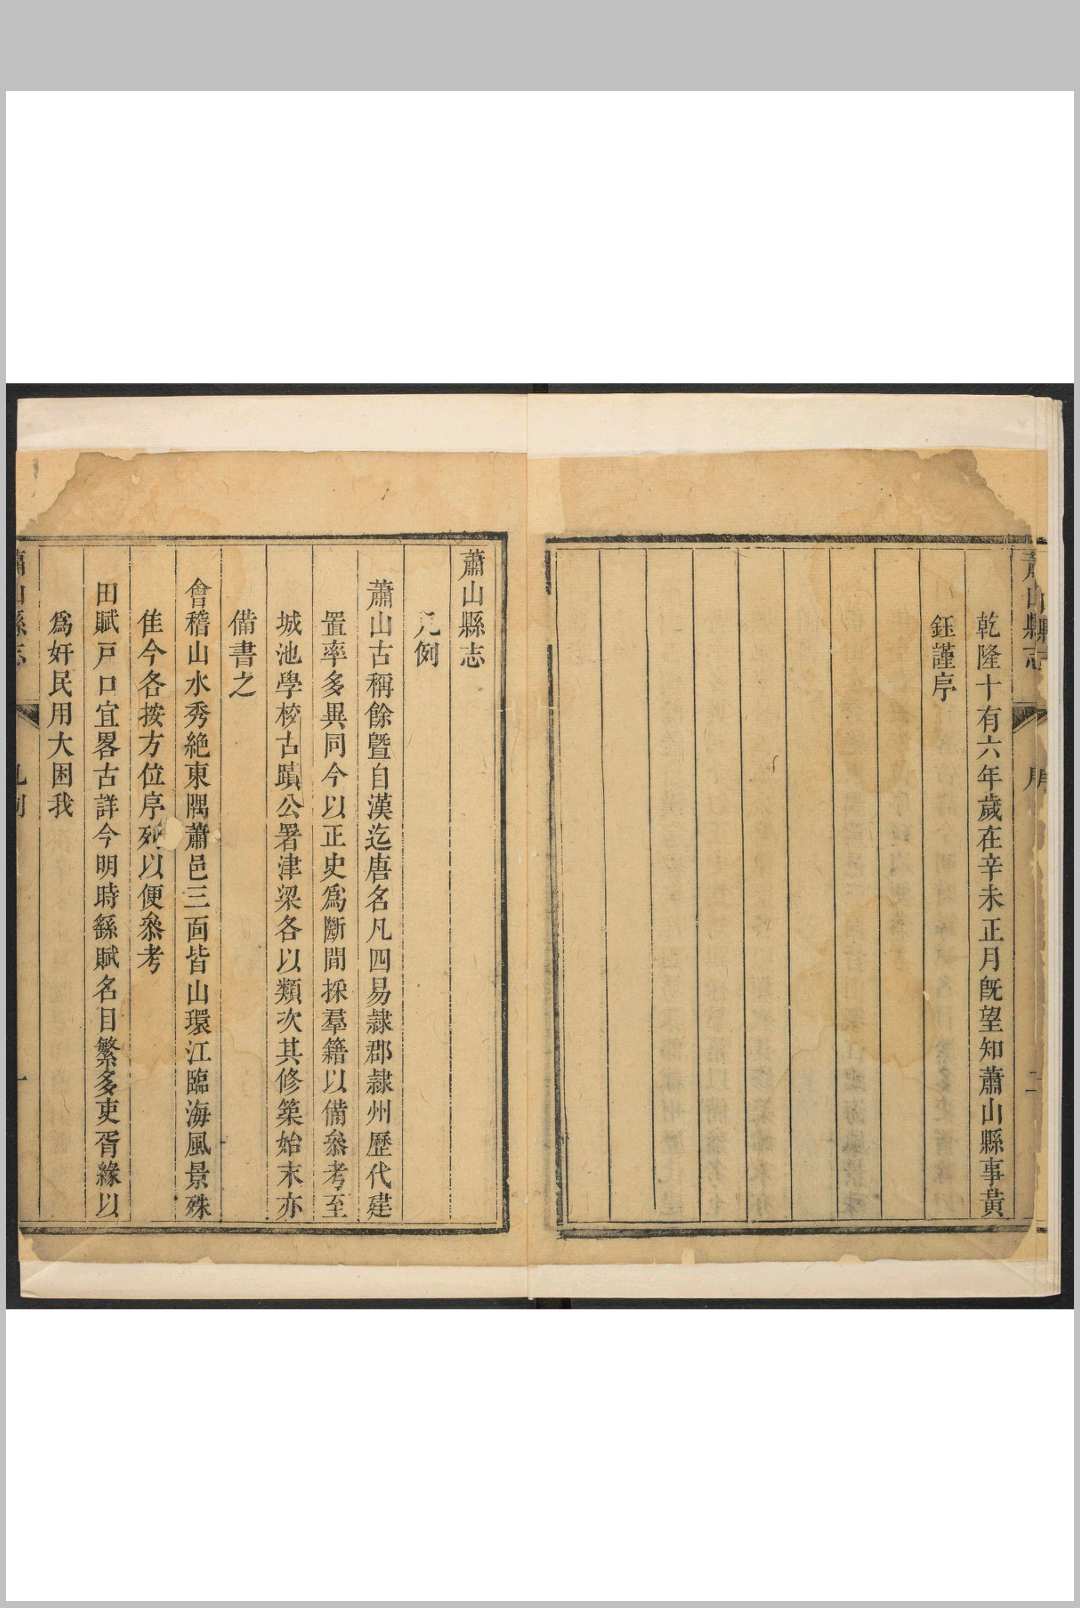 蕭山縣志
序
二
乾隆十有六年歲在辛未正月旣望知蕭山縣事黃
鈺謹序
蕭山縣志
凡例
蕭山古稱餘曁自漢迄唐名凡四易隷郡隷州歷代建
置率多異同今以正史爲斷間採羣籍以備叅考至
城池學校古蹟公署津梁各以類次其修築始末亦
備書之
會稽山水秀絶東隅蕭邑三面皆山環江臨海風景殊
佳今各按方位序列以便叅考
田賦戸口宜畧古詳今明時繇賦名目繁多吏胥緣以
爲奸民用大困我
蕭山縣志
凡例
一